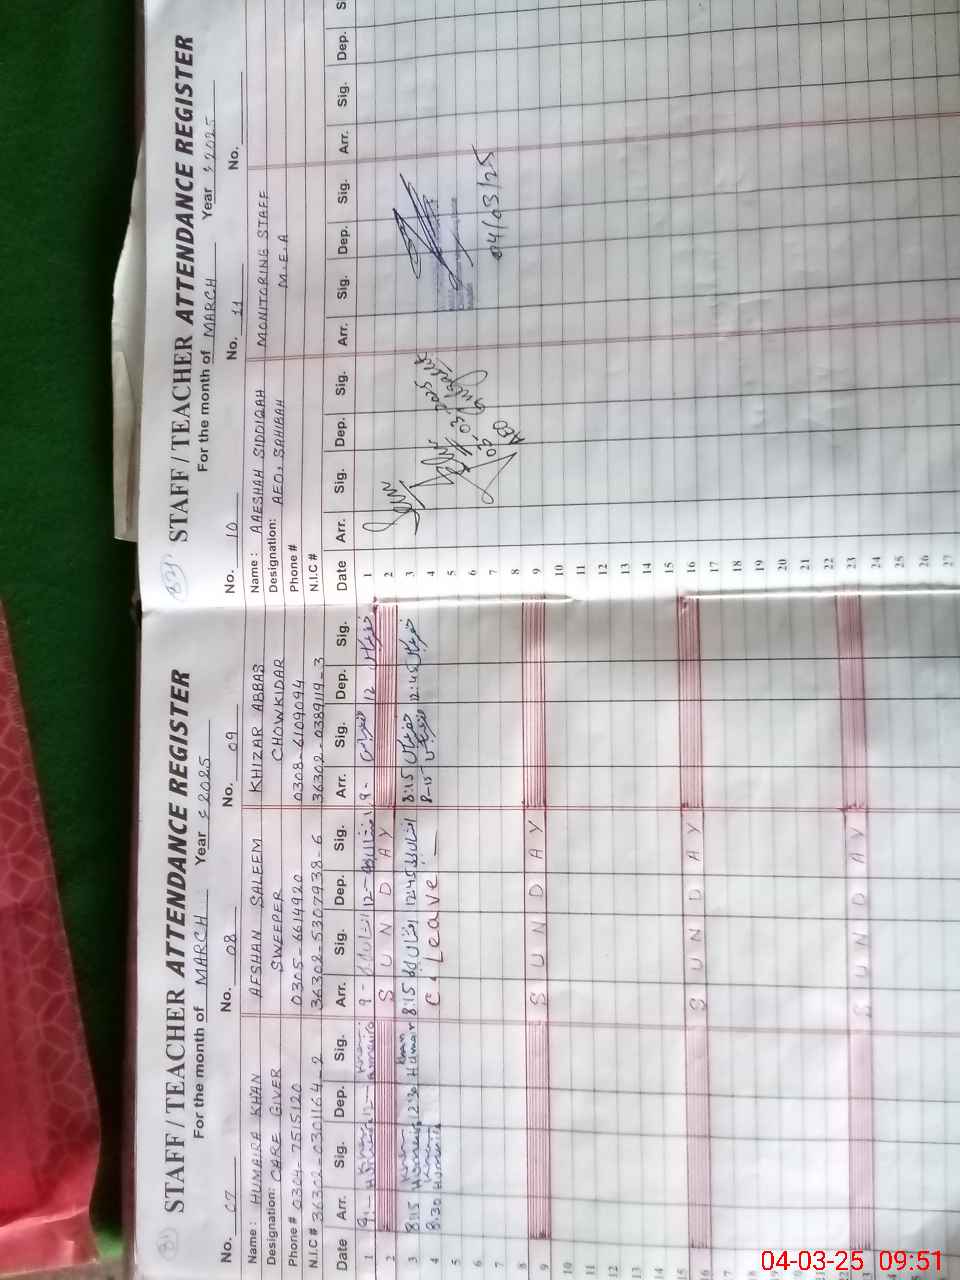 STAFF / TEACHER ATTENDANCE REGISTER
For the month of MARCH Year 2025
No. 07 No. 08 No. 09
Name : HUMAIRA KHAN AFSHAN SALEEM KHIZAR ABBAS
Designation: CARE GIVER SWEEPER CHOWKIDAR
Phone # 0304-7515120 0305-6614920 0308-6109094
N.I.C # 36302-0301164-2 36302-5307938-6 36302-0389119-3
Date Arr. Sig. Dep. Sig. Arr. Sig. Dep. Sig. Arr. Sig. Dep. Sig.
1 9:- Humaira Khan 12- Humaira Khan 9- 12- 9- 12
2 SUNDAY
3 8:15 Humaira Khan 12:30 Humaira Khan 8:15 12:45 8:15 12:45
4 8:30 Humaira Khan C. Leave 8-15
5
6
7
8
9 SUNDAY
10
11
12
13
14
15
16 SUNDAY
17
18
19
20
21
22
23 SUNDAY
STAFF / TEACHER ATTENDANCE REGISTER
For the month of MARCH Year 2025
No. 10 No. 11 No.
Name : AAESHAH SIDDIQAH MONITORING STAFF
Designation: AEO, SAHIBAH M.E.A
Phone #
N.I.C #
Date Arr. Sig. Dep. Sig. Arr. Sig. Dep. Sig. Arr. Sig. Dep.
1
2
3
4
5
6
7 AEO 04/03/25
8
9
10
11
12
13
14
15
16
17
18
19
20
21
22
23
24
25
26
27
04-03-25 09:51